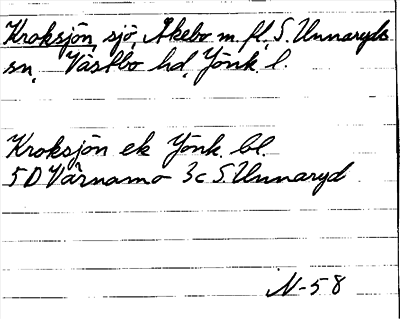 Kroksjön, sjö, Åkebo m.fl. S. Unnaryds
sn, Västbo hd, Jönk. l.
Kroksjön ek Jönk. bl.
5D Värnamo 3c S. Unnaryd
N-58